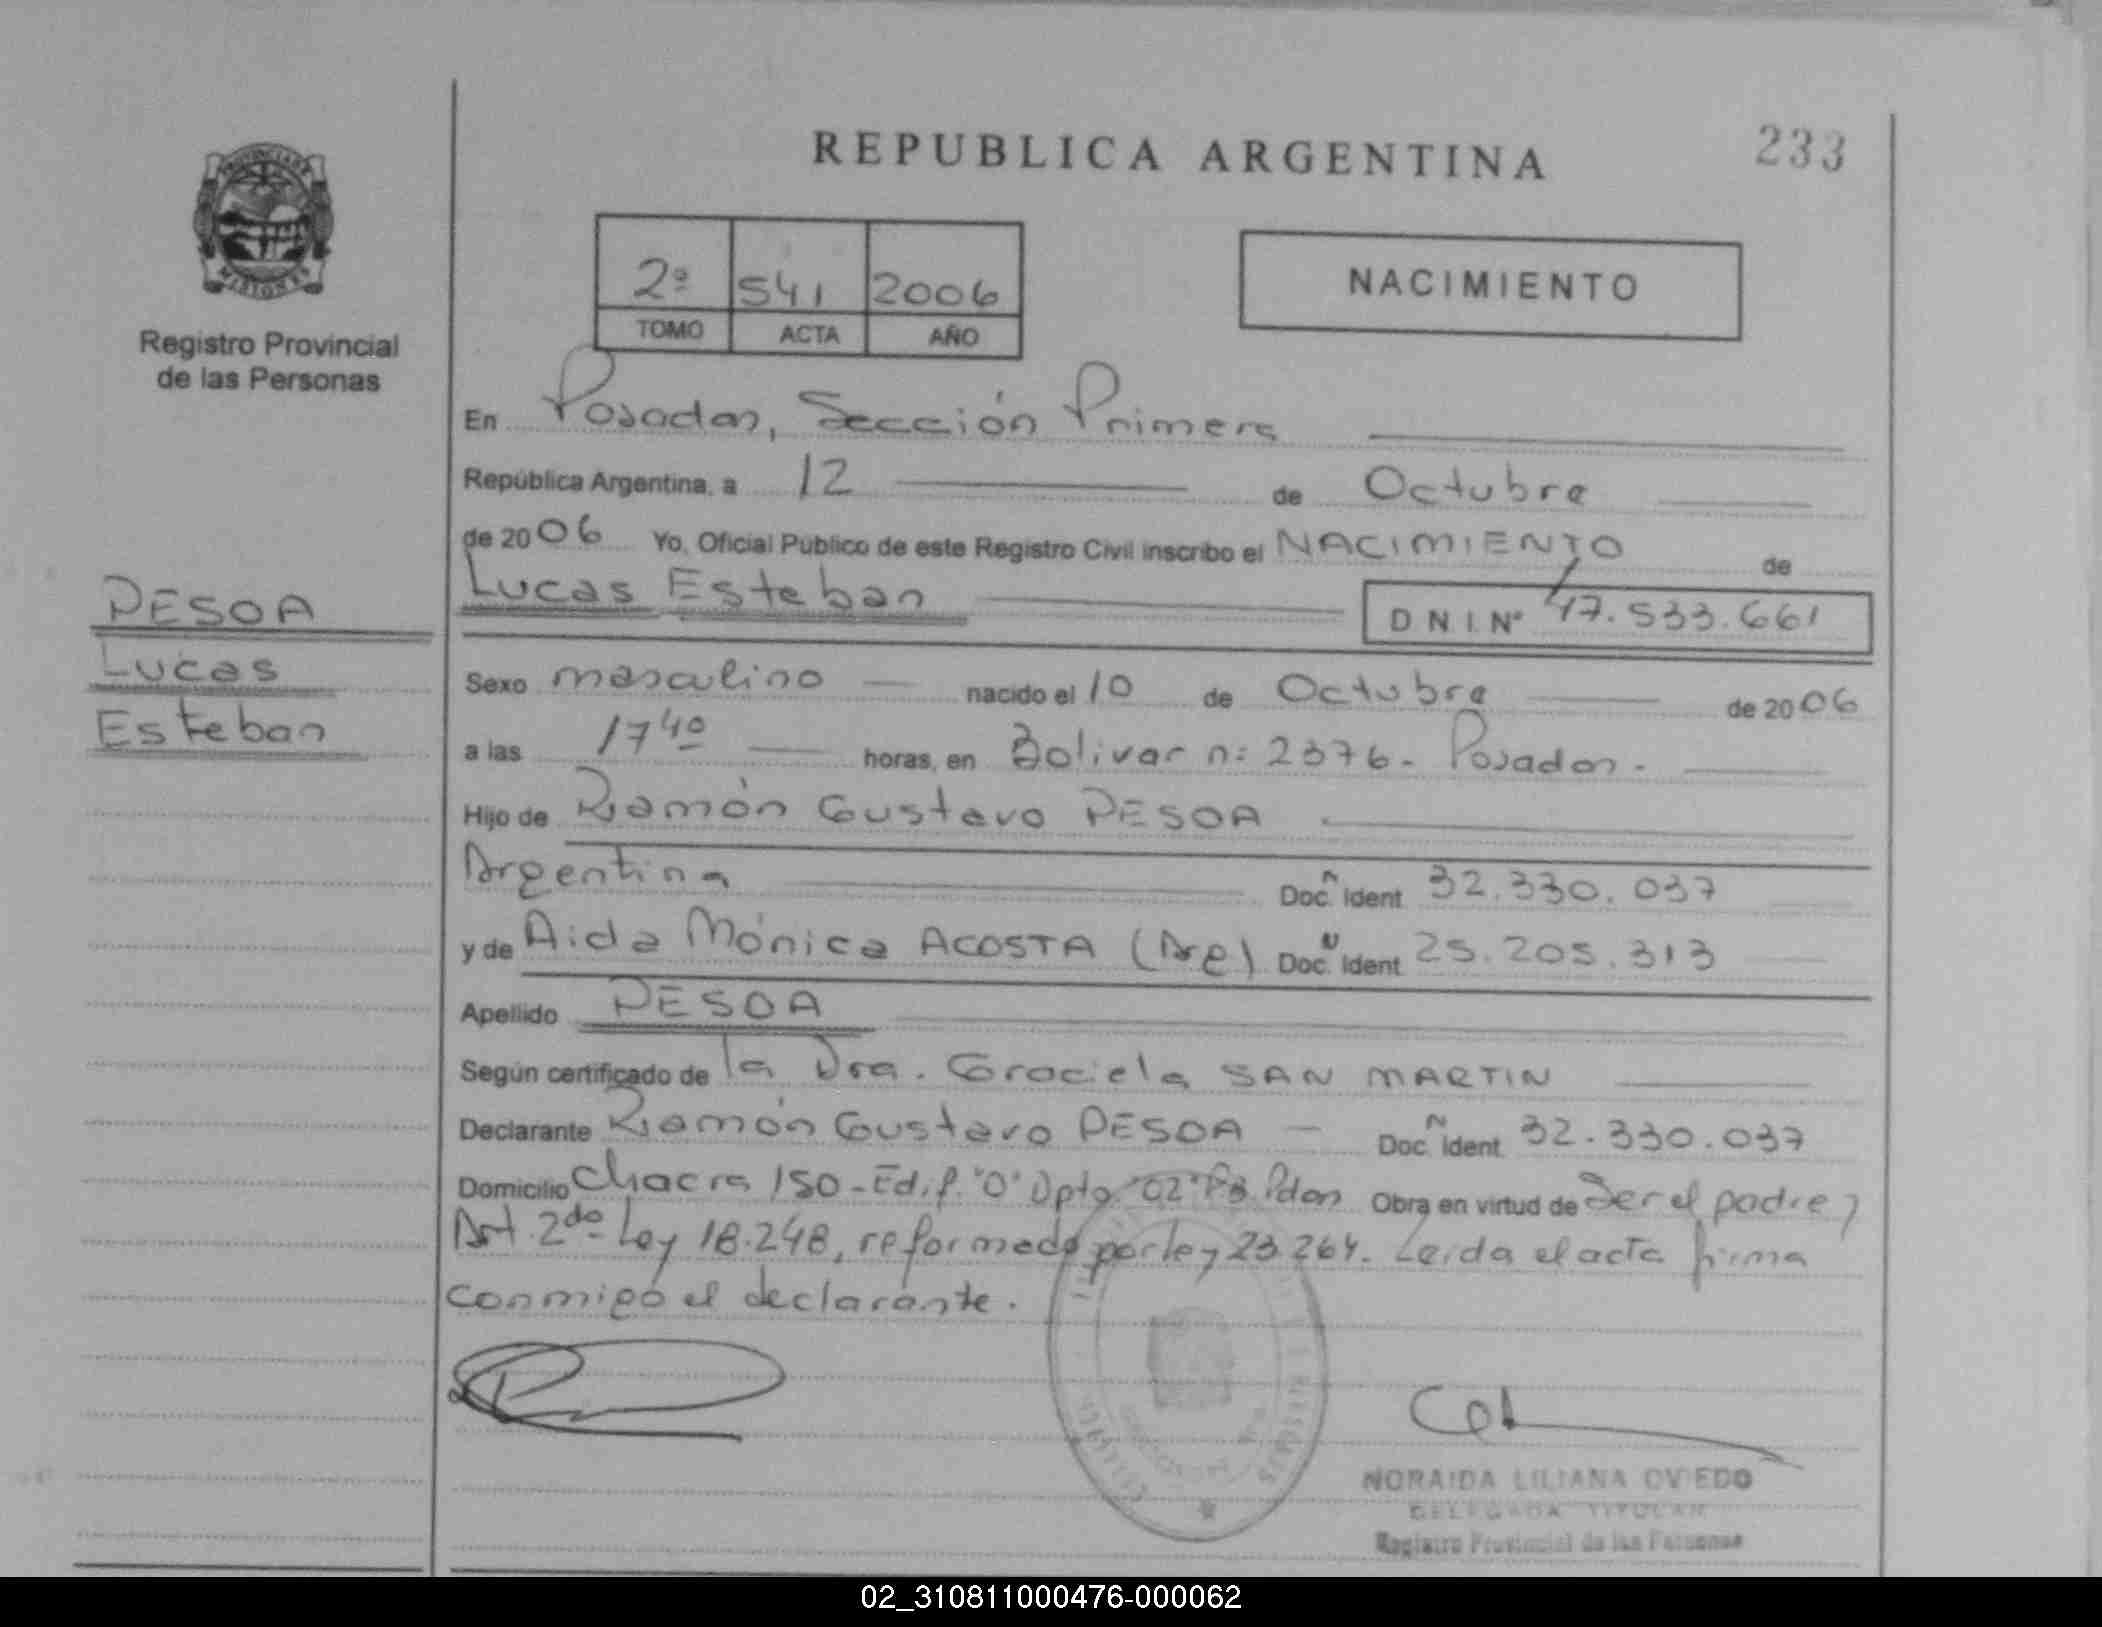 REPUBLICA ARGENTINA
233
PROVINCIA DE
MISIONES
Registro Provincial
de las Personas
2º 541 2006
TOMO ACTA AÑO
NACIMIENTO
En Posadas, Sección Primera
República Argentina, a 12 de Octubre
de 2006 Yo, Oficial Público de este Registro Civil inscribo el NACIMIENTO de
Lucas Esteban D N I. Nº 47.533.661
PESOA
Lucas
Esteban
Sexo masculino nacido el 10 de Octubre de 2006
a las 17 40 horas, en Bolivar nº 2376 - Posadas -
Hijo de Ramón Gustavo PESOA
Argentina Doc. Ident 32.330.037
y de Aida Mónica ACOSTA (Arg) Doc. Ident 25.205.313
Apellido PESOA
Según certificado de la Dra. Graciela SAN MARTIN
Declarante Ramón Gustavo PESOA - Doc. Ident. 32.330.037
Domicilio Chacra 150 - Edif. "O" Dpto "02" PB. Pdas Obra en virtud de Ser el padre y
Art. 2do Ley 18.248, reformada por ley 23.264. Leida el acta firma
conmigo el declarante.
NORAIDA LILIANA OVIEDO
DELEGADA TITULAR
Registro Provincial de las Personas
02_310811000476-000062